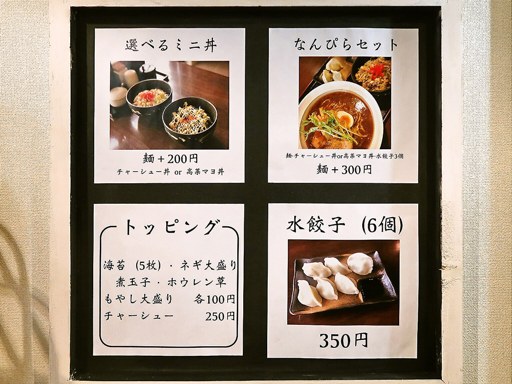 選べるミニ丼
麺+200円
チャーシュー丼 or 高菜マヨ丼
なんぴらセット
麺・チャーシュー丼or高菜マヨ丼・水餃子3個
麺+300円
トッピング
海苔 (5枚)・ネギ大盛り
煮玉子・ホウレン草
もやし大盛り 各100円
チャーシュー 250円
水餃子 (6個)
350円